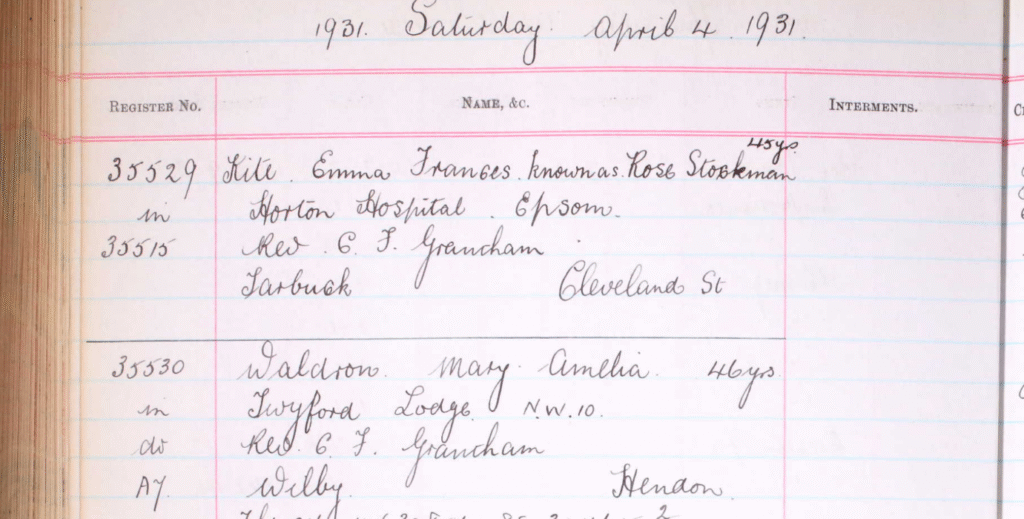 1931. Saturday. April 4. 1931.
REGISTER NO. NAME, &C. INTERMENTS.
45ys.
35529 Kite. Emma Frances. known as. Rose Stockman
in Horton Hospital. Epsom.
35515 Rev. C. F. Grancham
Tarbuck Cleveland St
35530 Waldron. Mary. Amelia. 46yrs.
in Twyford Lodge. N.W.10.
do Rev. C. F. Grancham
A7. Wilby. Hendon.